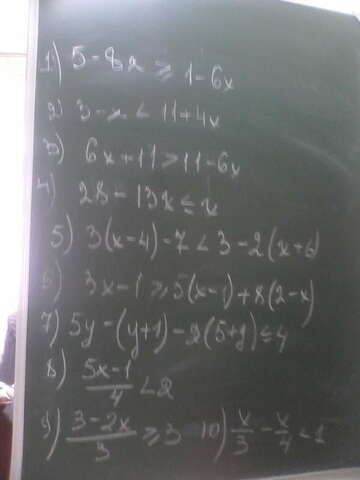 1) 5-8x ≥ 1-6x
2) 3-x < 11+4x
3) 6x+11>11-6x
4) 28-13x≤x
5) 3(x-4)-7<3-2(x+6)
6) 3x-1≥5(x-1)+8(2-x)
7) 5y-(y+1)-2(5+y)≤4
8) (5x-1)/4 <2
9) (3-2x)/3 ≥3 10) x/3 - x/4 <1